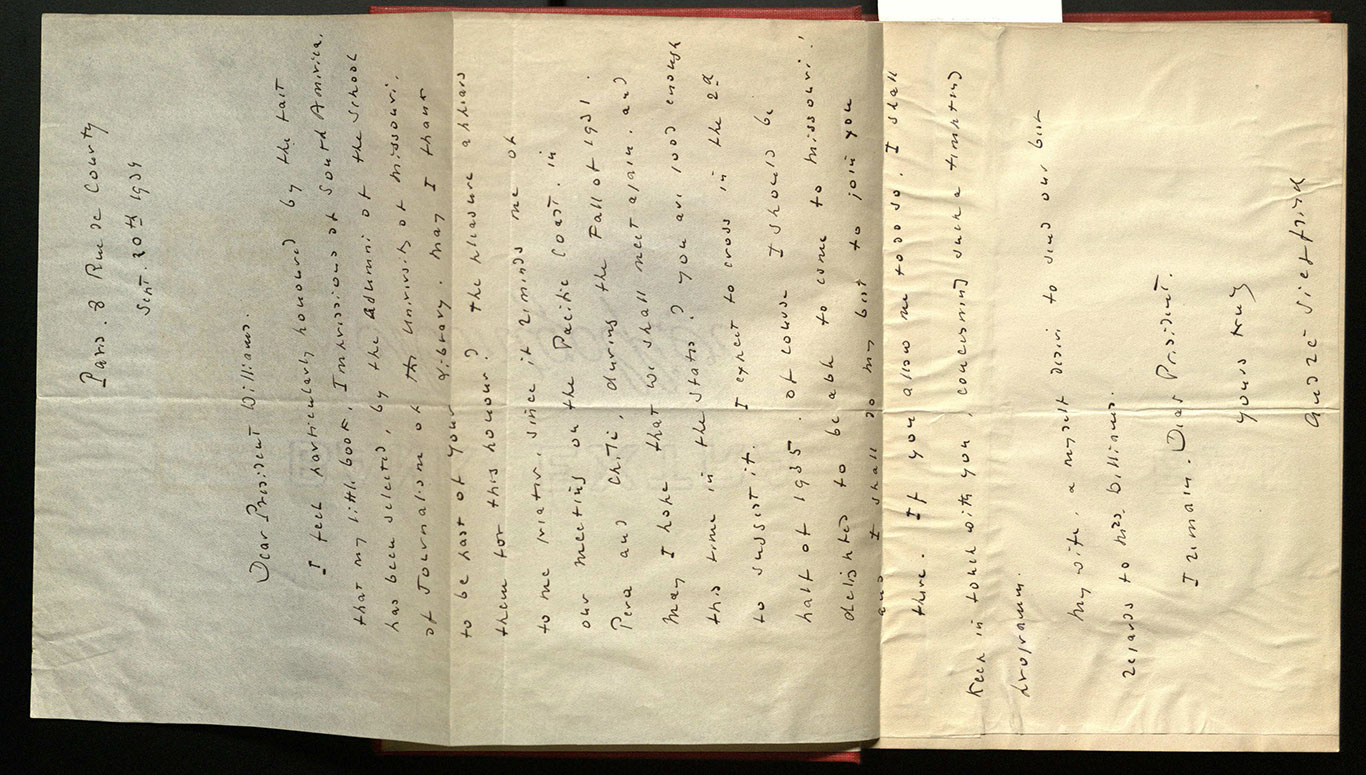 Paris. 8 Rue de Courty
Sept. 20th 1934
Dear President Williams.
I feel particularly honoured by the fact
that my little book, Impressions of South America.
has been selected, by the Alumni of the School
of Journalism of the University of Missouri.
to be part of your library. May I thank
them for this honour? The pleasure appears
to me greater, since it reminds me of
our meeting on the Pacific Coast. in
Peru and Chili, during the Fall of 1931.
May I hope that we shall meet again. and
this time in the States? You are good enough
to suggest it. I expect to cross in the 2d
half of 1935. Of course I should be
delighted to be able to come to Missouri.
and I shall do my best to join you
there. If you allow me to do so, I shall
keep in touch with you, concerning such a tempting
programm.
My wife & myself desire to send our best
regards to Mrs. Williams.
I remain. Dear President.
yours truly
André Siegfried